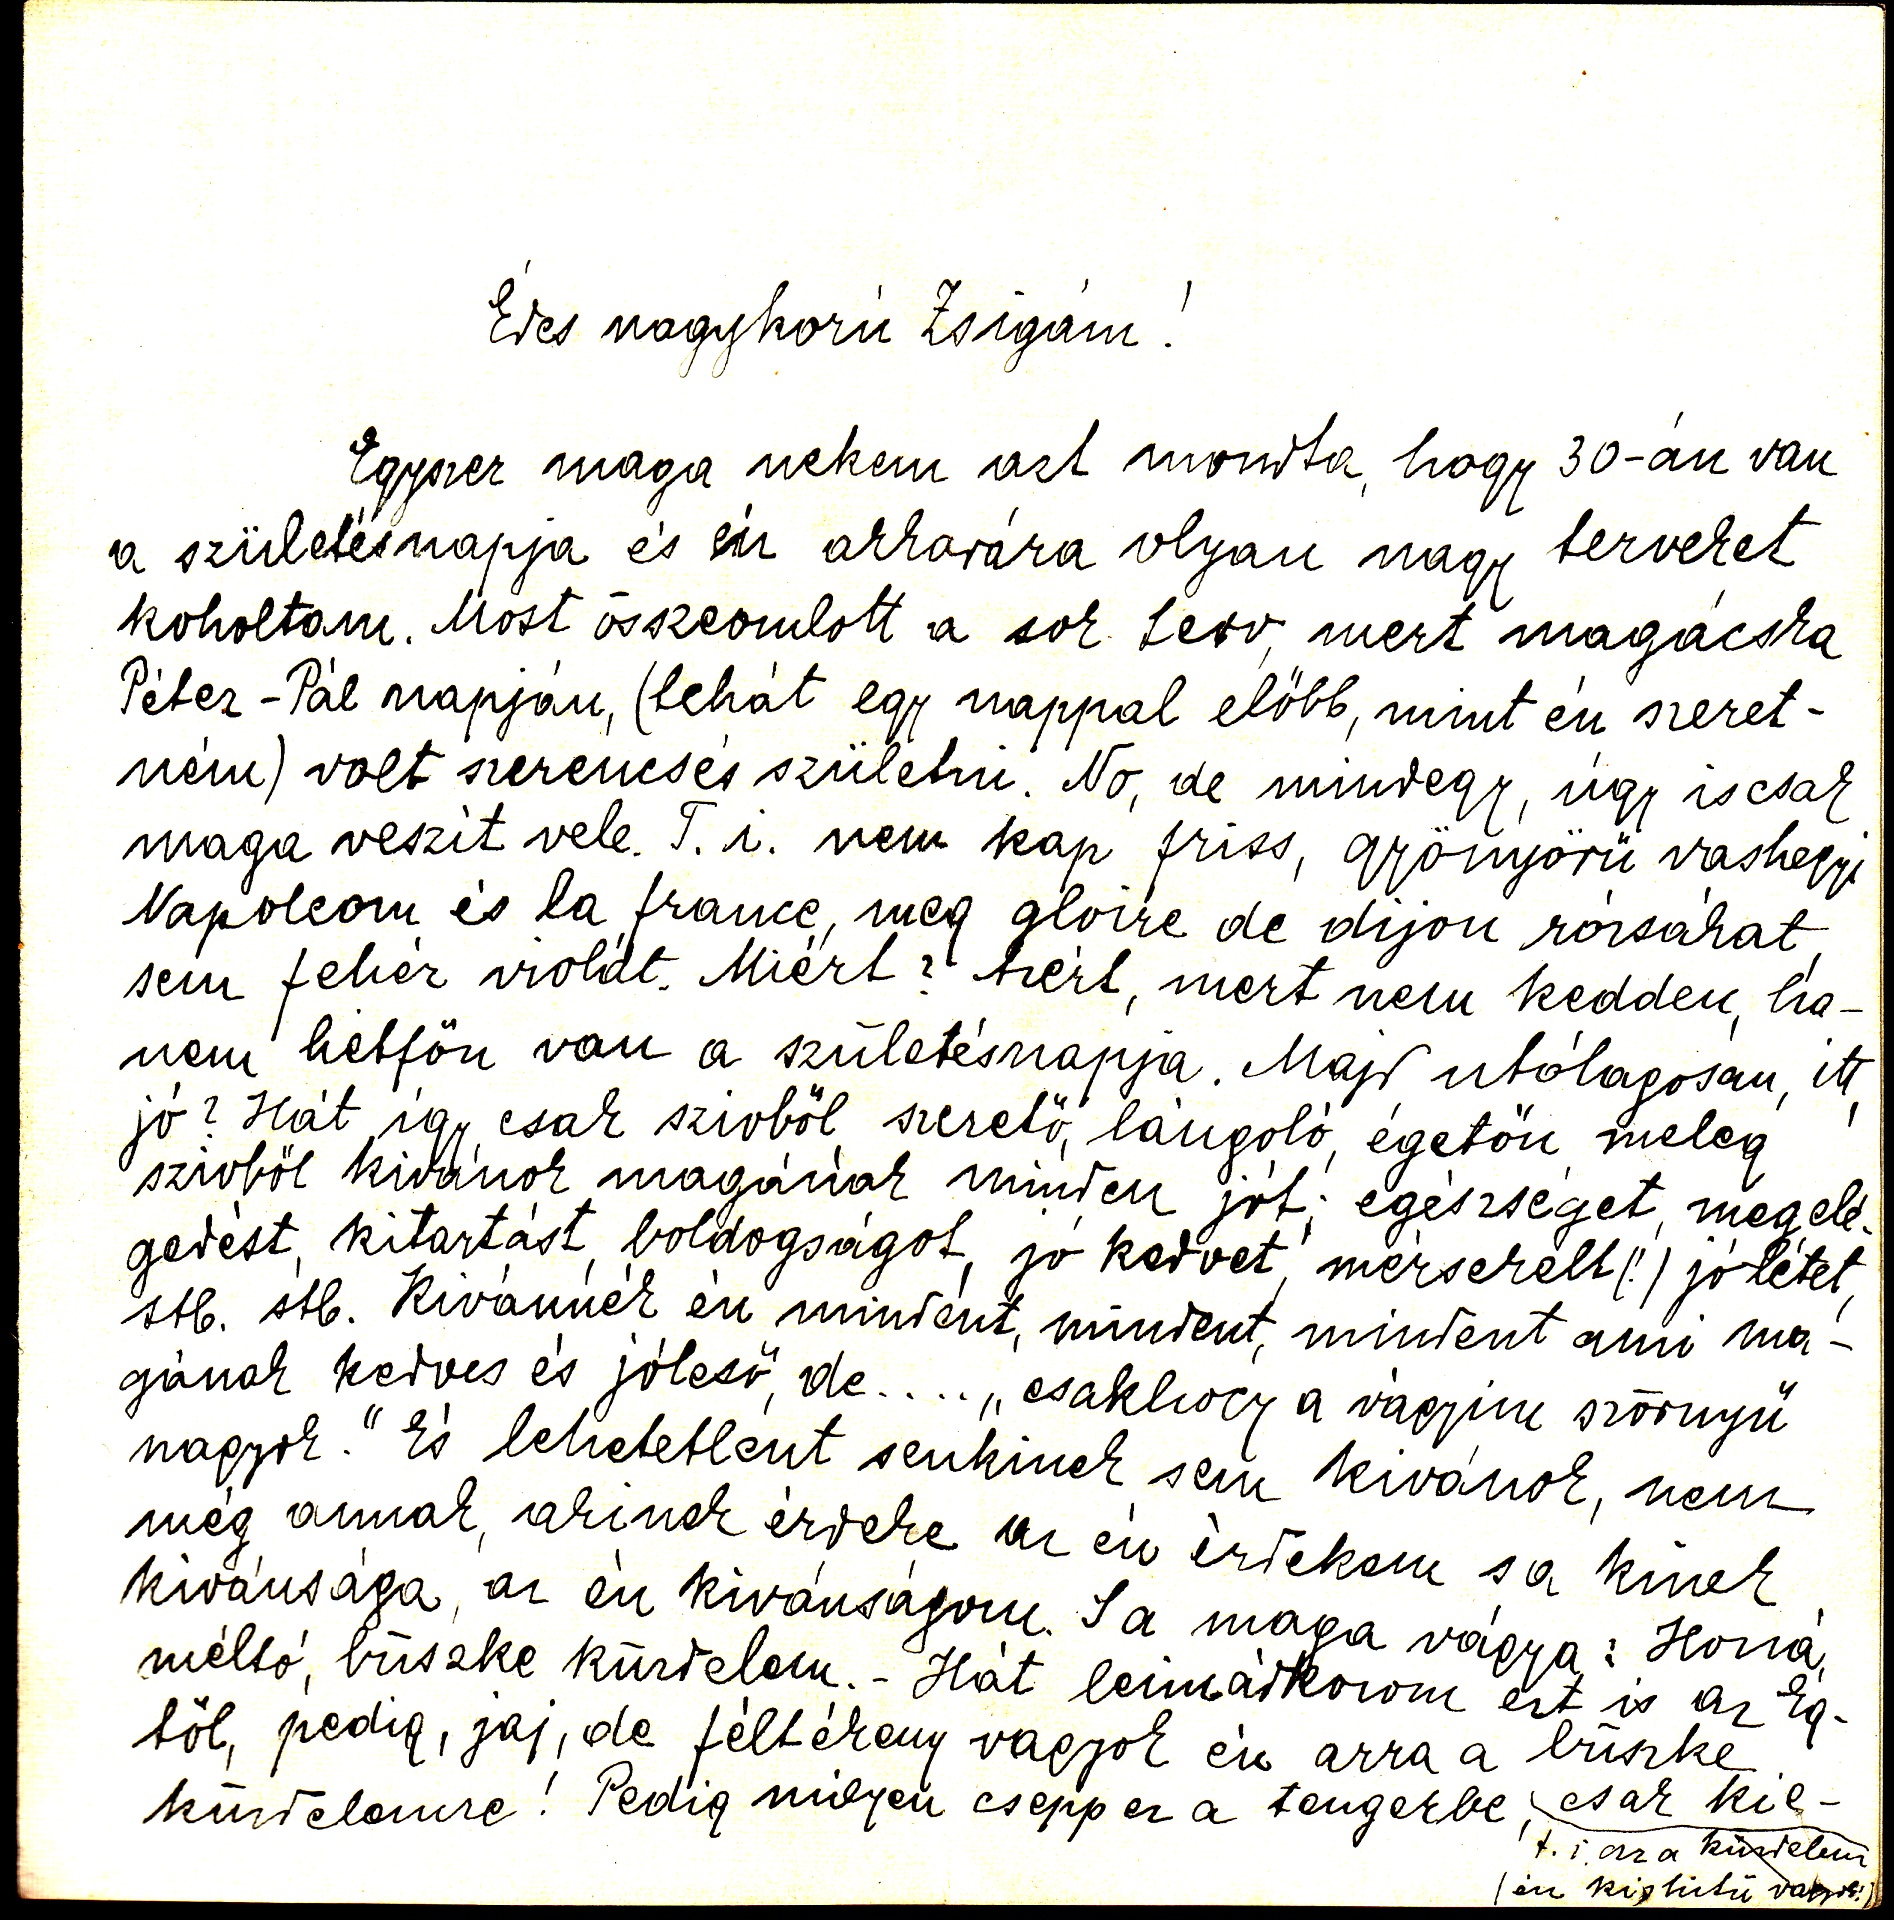 Édes nagykorú Zsigám!
Egyszer maga nekem azt mondta, hogy 30-án van
a születésnapja és én akkorára olyan nagy terveket
koholtam. Most öszeomlott a sok terv, mert magácska
Péter-Pál napján, (tehát egy nappal előbb, mint én szeret-
ném) volt szerencsés születni. No, de mindegy, úgy is csak
maga veszit vele. T. i. nem kap friss, gyönyörü vashegyi
Napoleom és la france, meg gloire de dijon rózsákat,
sem fehér violát. Miért? Azért, mert nem kedden, ha-
nem hétfőn van a születésnapja. Majd utólagosan, itt,
jó? Hát így csak szivből szerető, lángoló, égetőn meleg
szivből kivánok magának minden jót; egészséget, megelé-
gedést, kitartást, boldogságot, jó kedvet, mérsekelt(!) jólétet,
stb. stb. Kivánnék én mindent, mindent, mindent ami ma-
gának kedves és jóleső, de.... „csakhogy a vágyim szörnyü
nagyok." És lehetetlent senkinek sem kivánok, nem
még annak, akinek érdeke az én érdekem s a kinek
kivánsága, az én kivánságom. S a maga vágya: Honá,
méltó, büszke küzdelem. - Hát leimádkozom ezt is az Ég-
től, pedig, jaj, de féltékeny vagyok én arra a büszke
küzdelemre! Pedig milyen csepp ez a tengerbe, csak kie-
t. i. az a küzdelem
(én kishitü vagyok!)